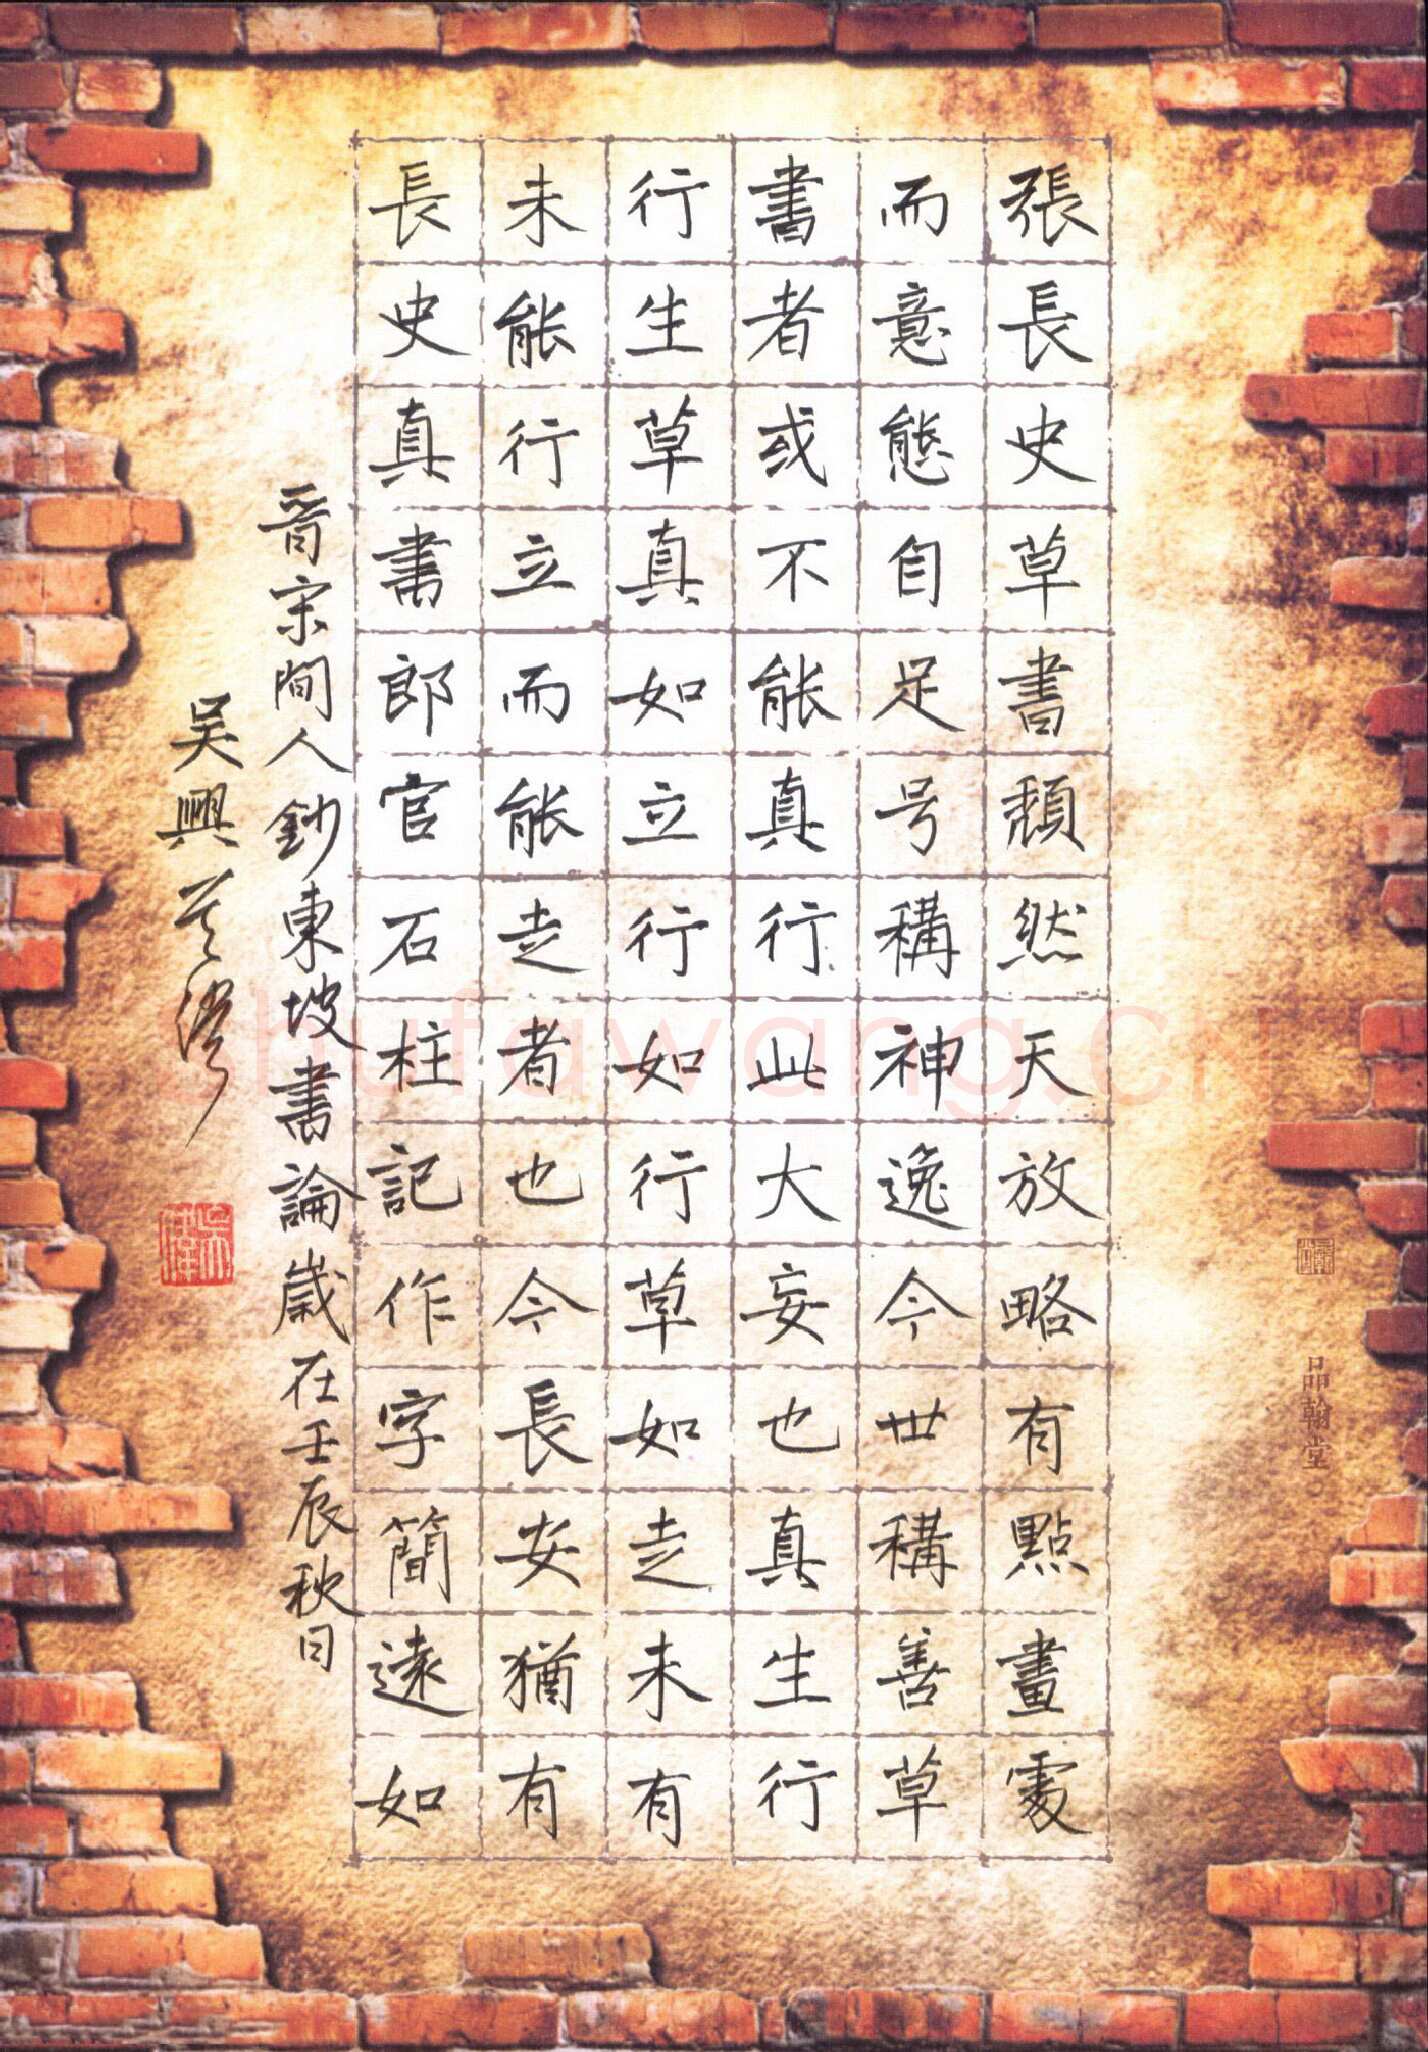 張長史草書頹然天放略有點畫處
而意態自足号稱神逸今世稱善草
書者或不能真行此大妄也真生行
行生草真如立行如行草如走未有
未能行立而能走者也今長安猶有
長史真書郎官石柱記作字簡遠如
晉宋間人鈔東坡書論歲在壬辰秋日
吳興
品翰堂
shufawang.cn